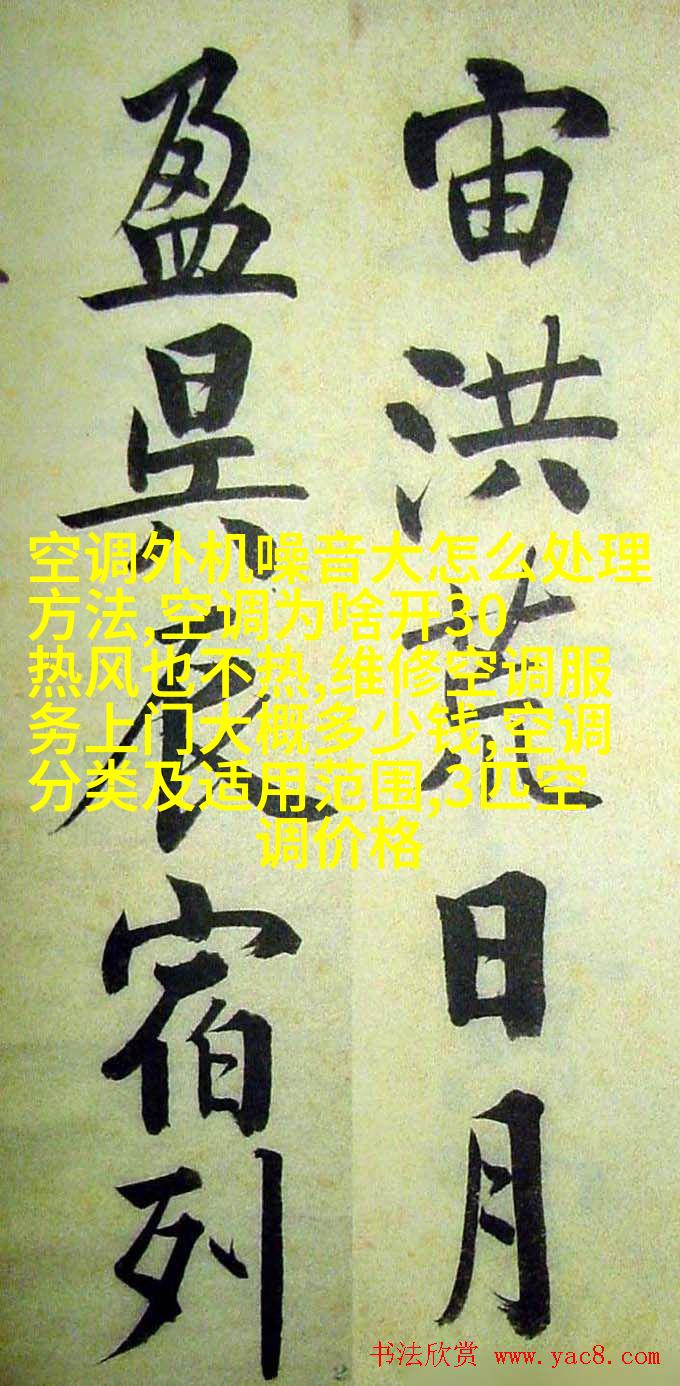 宙洪荒日月
盈昃辰宿列
空调外机噪音大怎么处理
方法,空调为啥开30
热风也不热,维修空调服
务上门大概多少钱,空调
分类及适用范围,3匹空
调价格
书法欣赏 www.yac8.com